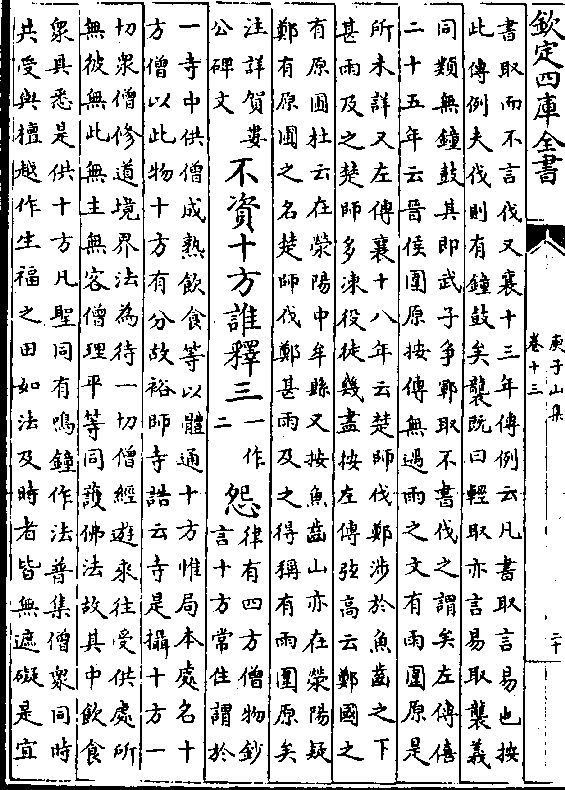 欽定四庫全書
庚子山集
卷十三
二十
書取而不言伐又襄十三年傳例云凡書取言易也按
此傳例夫伐則有鐘鼓矣襲既曰輕取亦言易取襲義
同類無鐘鼓其即武子争鄆取不書伐之謂矣左傳僖
二十五年云晉侯圍原按傳無遇雨之文有雨圍原是
所未詳又左傳襄十八年云楚師伐鄭涉於魚齒之下
甚雨及之楚師多凍役徒幾盡按左傳弦高云鄭國之
有原圃杜云在滎陽中牟縣又按魚齒山亦在滎陽疑
鄭有原圃之名楚師伐鄭甚雨及之得稱有雨圍原矣
注詳賀婁
公碑文
不資十方誰釋三
一作
二
怨
律有四方僧物鈔
言十方常住謂於
一寺中供僧成熟飲食等以體通十方惟局本處名十
方僧以此物十方有分故裕師寺誥云寺是攝十方一
切衆僧修道境界法為待一切僧經遊來往受供處所
無彼無此無主無容僧理平等同護佛法故其中飲食
衆具悉是供十方凡聖同有鳴鐘作法普集僧衆同時
共受與檀越作生福之田如法及時者皆無遮礙是宜